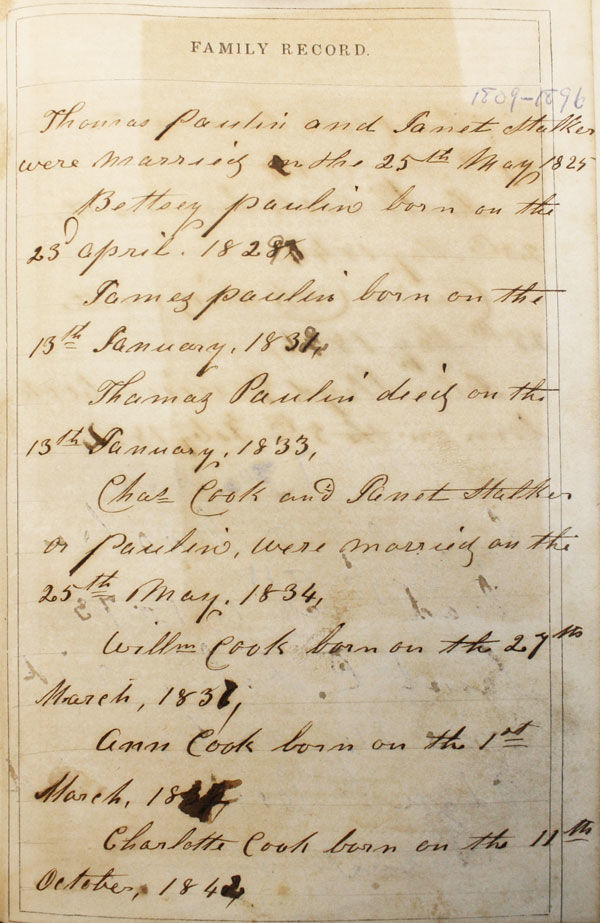 FAMILY RECORD.
1809-1896
Thomas Paulin and Janet Stalker
were married on the 25th May, 1825
Bettsey Paulin born on the
23d April. 182
James Paulin born on the
13th January, 183
Thomas Paulin died on the
13th January, 1833,
Chas Cook and Janet Stalker
or Paulin, were married on the
25th May, 1834,
Willm Cook born on the 27th
March, 183
Ann Cook born on the 1st
March, 18
Charlotte Cook born on the 11th
October, 184